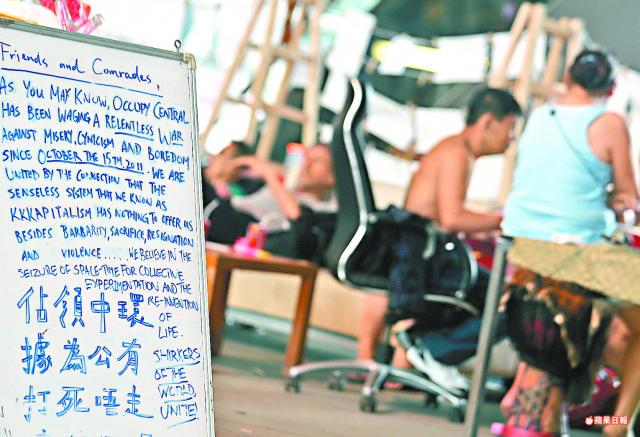 Friends and Comrades,
AS YOU MAY KNOW, OCCUPY CENTRAL
HAS BEEN WAGING A RELENTLESS WAR
AGAINST MISERY, CYNICISM AND BOREDOM
SINCE OCTOBER THE 15TH 2011. WE ARE
UNITED BY THE CONNECTION THAT THE
SENSELESS SYSTEM THAT WE KNOW AS
KKKAPITALISM HAS NOTHING TO OFFER US
BESIDES BARBARITY, SACRIFICE, RESIGNATION
AND VIOLENCE..... WE BELIEVE IN THE
SEIZURE OF SPACE-TIME FOR COLLECTIVE
EXPERIMENTATION AND THE
RE-INVENTION
OF
LIFE.
佔領中環
據為公有
打死唔走
SHARKERS
OF THE
WORLD
UNITE!
蘋果日報